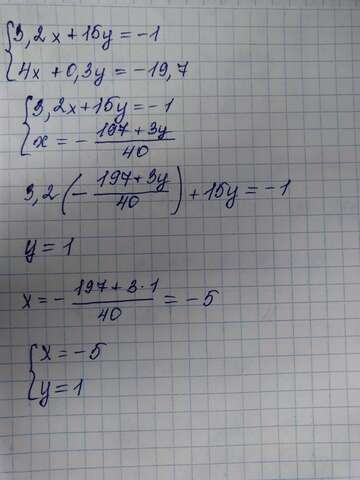 3,2x+15y=-1
4x+0,3y=-19,7
3,2x+15y=-1
x=-\frac{197+3y}{40}
3,2(-\frac{197+3y}{40})+15y=-1
y=1
x=-\frac{197+3·1}{40}=-5
x=-5
y=1